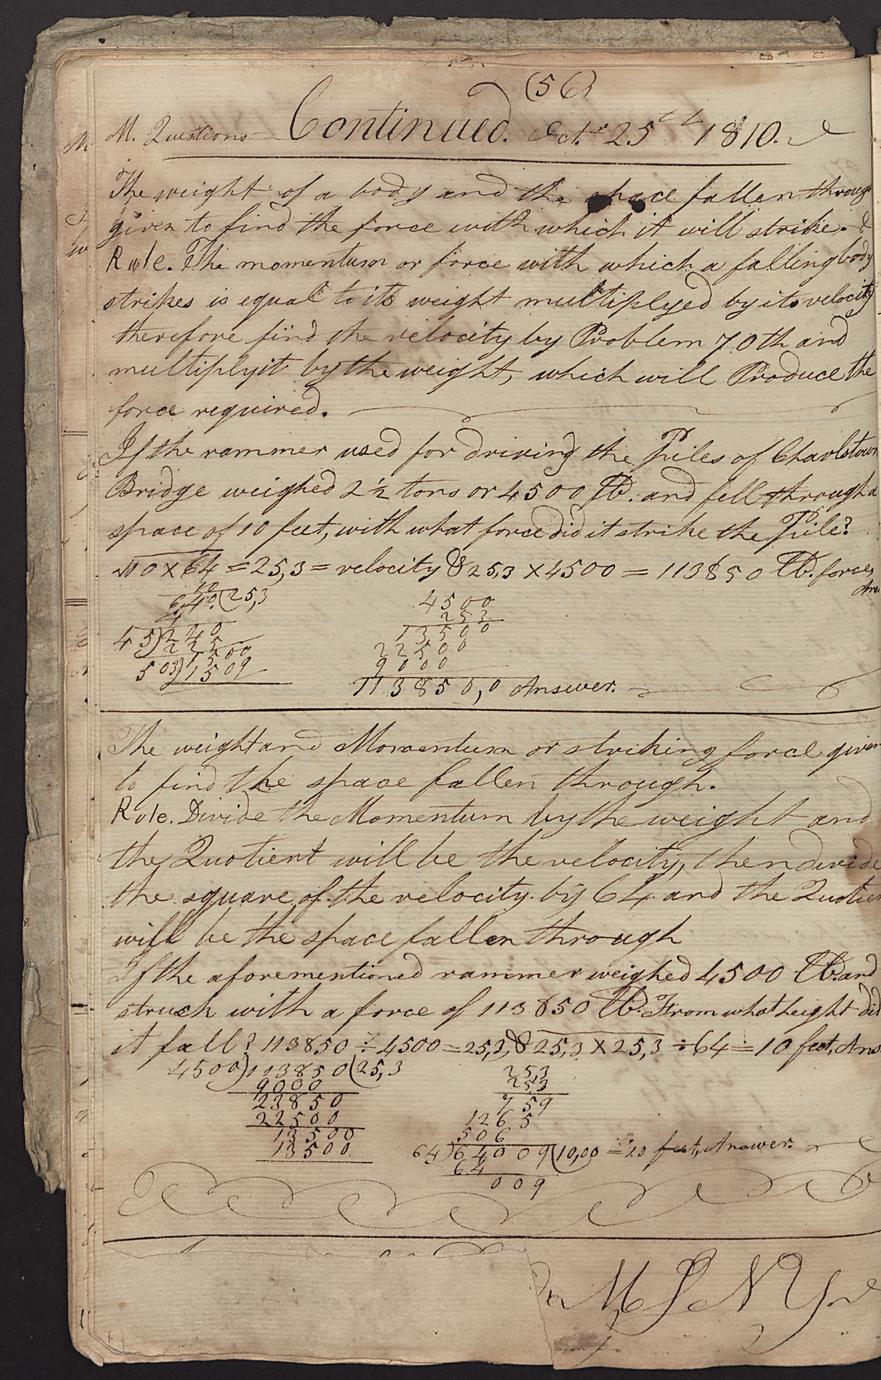 (56)
M. Questions Continued. Oct. 25th 1810.
The weight of a body and the space fallen throug
given to find the force with which it will strike.
Rule. The momentum or force with which a falling body
strikes is equal to its weight multiplyed by its velocity
therefore find the velocity by Problem 70th and
multiply it by the weight, which will Produce the
force required.
If the rammer used for driving the Piles of Charlstown
Bridge weighed 2½ tons or 4500 lb. and fell through a
space of 10 feet, with what force did it strike the Pile?
√10×64 = 25,3 = velocity & 25,3 × 4500 = 113850 lb. force,
Ans
640(25,3
4
45)240
225
503)1500
1509
4500
253
13500
22500
9000
113850,0 Answer.
The weight and Momentum or striking force given
to find the space fallen through.
Rule. Divide the Momentum by the weight and
the Quotient will be the velocity, then divide
the square of the velocity by 64 and the Quotien
will be the space fallen through
If the aforementioned rammer weighed 4500 lb. and
struck with a force of 113850 lb. From what height did
it fall? 113850 ÷ 4500 = 25,3, & 25,3 × 25,3 ÷ 64 = 10 feet, Ans
4500)113850(25,3
9000
23850
22500
13500
13500
253
253
759
1265
506
64)64009(10,00 = 10 feet, Answer.
64
009